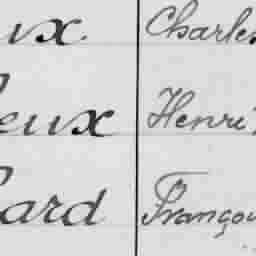 ux. Charles
eux Henri
ard François